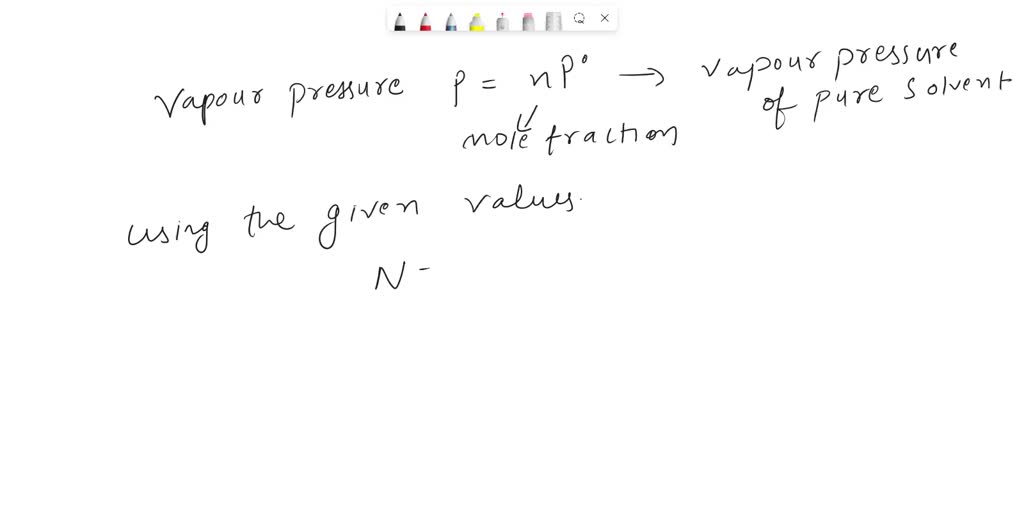 Vapour pressure P = nP° → vapour pressure
of pure solvent
mole fraction
using the given values.
N -